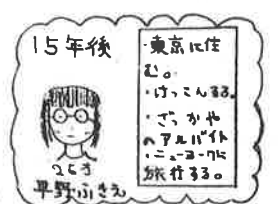 15年後
26才
平野ふきえ
・東京に住
む。
・けっこんする。
・ざっかや
のアルバイト
・ニューヨークに
旅行する。